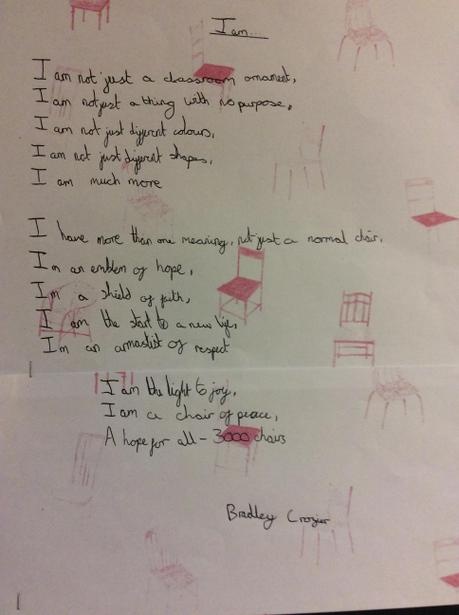 I am...
I am not just a classroom ornament,
I am not just a thing with no purpose,
I am not just different colours,
I am not just different shapes,
I am much more
I have more than one meaning, not just a normal chair,
I'm an emblem of hope,
I'm a shield of faith,
I am the start to a new life,
I'm an of respect
I am the light to joy,
I am a chair of peace,
A hope for all - 3000 chairs
Bradley Crozier